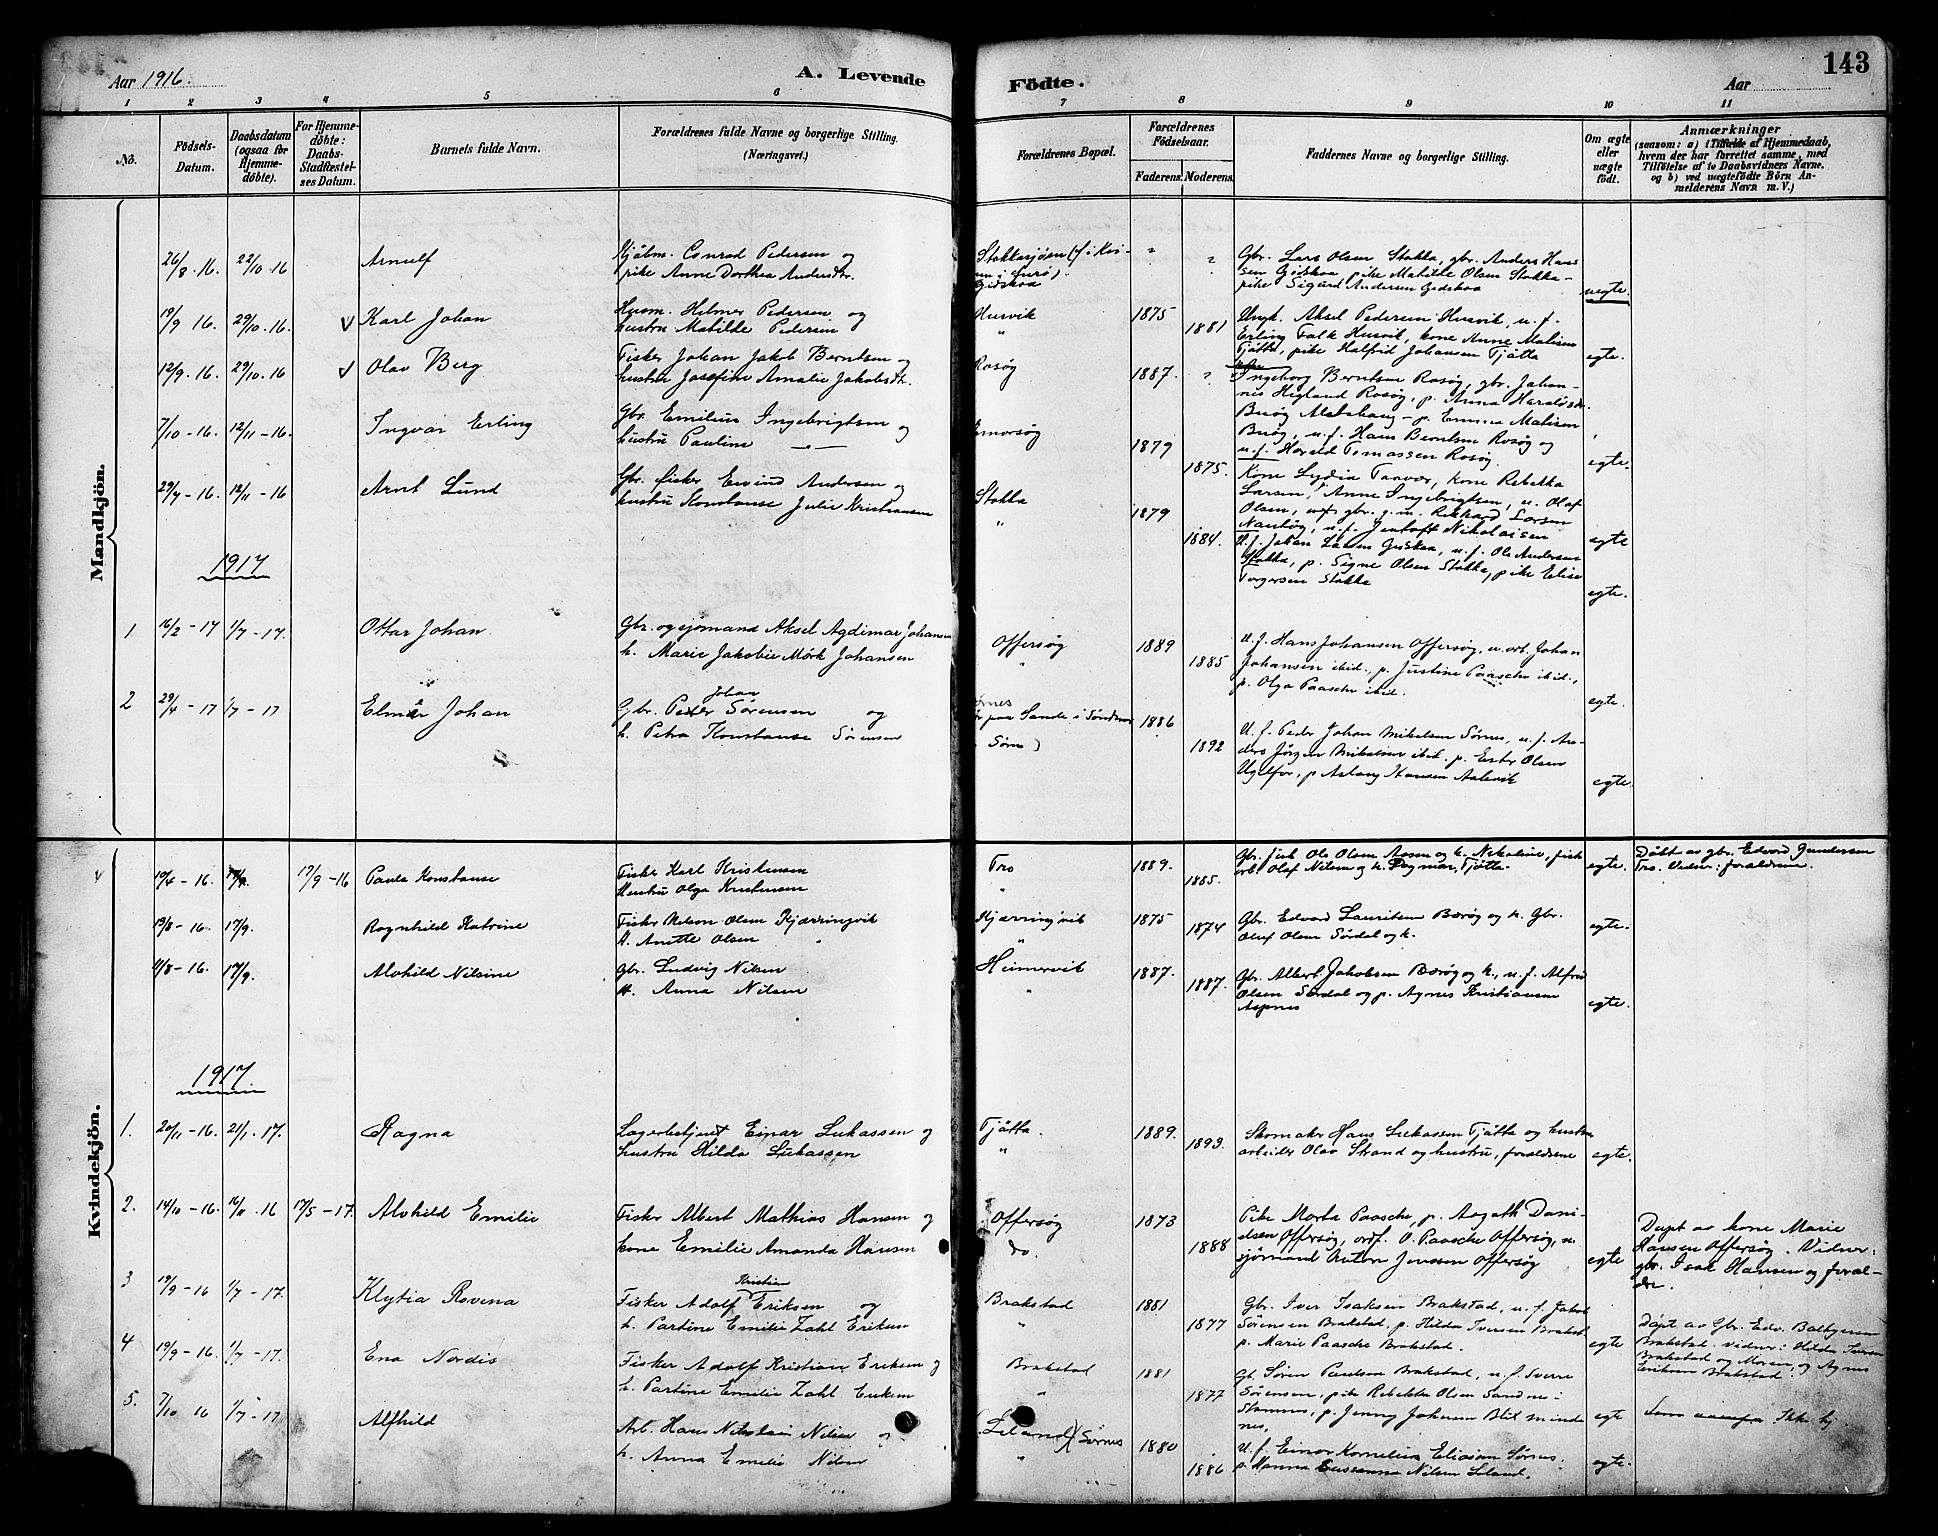 Aar 1916.
A. Levende
Födte.
Aar
143
1 2 3 4 5 6 7 8 9 10 11
No.
Födsels-
Datum.
Daabsdatum
(ogsaa for
Hjemme-
döbte).
For Hjemme-
döbte:
Daabs-
Stadfæstel-
ses Datum.
Barnets fulde Navn.
Forældrenes fulde Navne og borgerlige Stilling.
(Næringsvei.)
Forældrenes Bopæl.
Forældrenes
Födselsaar.
Faderens. Moderens.
Faddernes Navne og borgerlige Stilling.
Om ægte
eller
uægte
födt.
Anmærkninger
(saasom: a) i Tilfælde af Hjemmedaab,
hvem der har forrettet samme, med
Tilföielse af to Daabsvidners Navne.
og b) ved uægtefödte Börn An-
melderens Navn m. V.)
Mandkjön.
26/8 . 16. 22/10 . 16 Arnulf
Conrad Pedersen og
pike Anne Dorthea Andersdtr.
Gidskaa
" "
Gbr. Lars Olsen Stokka, gbr. Anders Hans
sen Gidskaa, pike Matilde Olsen Stokka-
pike Sigurd Andersen Gidskaa
uegte.
19/9 16. 29/10 . 16. v Karl Johan
Husm. Helmer Pedersen og
hustru Matilde Pedersen
Husvik
"
1875 1881
Ungk. Aksel Pedersen Husvik, u.f.
Erling Falk Husvik, kone Anne Matisen
Tjötta, pike Halfrid Johansen Tjötta
egte.
12/9 . 16. 29/10 . 16 v Olav Berg
Fisker Johan Jakob Berntsen og
hustru Josefine Amalie Jakobsdtr.
Rosøg
1887. "
Ingeborg Berntsen Rosøg, gbr. Johan-
nes Høgland Rosøg, p. Anna Haraldsdtr.
Buøg Alstahaug - p. Emma Matisen
Buøg, u.f. Hans Berntsen Rosøg og
u.f. Harald Tomassen Rosøg.
egte.
7/10 - 16. 12/11 - 16. Ingvar Erling
Gbr. Emilius Ingebrigtsen og
hustru Pauline — " —
1879 1875.
Kone Lydia Taavær, kone Rebekka
Larsen, Anne Ingebrigtsen, u. Olaf
Olsen, gbr. g.m. Rikhard Larsen
u.f. Jentoft Nikolaisen
egte
29/7 - 16. 12/11 - 16 Arnt Lund
Gbr. fisker Eivind Andersen og
hustru Konstanse Julie Kristiansen
Stokka
"
1879 1884.
U.f. Johan Larsen Gidskaa, u.f. Ole Andersen
Stokka, p. Signe Olsen Stokka, pike Elise
Torgersen Stokka
egte.
1917
1 16/2 - 17 1/7 - 17. Ottar Johan
Gbr. og sjömand Aksel Agdimar Johansen
h. Marie Jakobie Mørk Johansen
Offersøg
"
1889 1885
U.f. Hans Johansen Offersøg, u. arb. Johan
Johansen ibid., p. Justine Paasche ibid.,
p. Olga Paasche ibid.
egte.
2 29/4 - 17 1/7 - 17 Elmar Johan
Johan
Gbr. Peter Sørensen og
h. Petra Konstanse Sørensen
1886 1892
U.f. Peder Johan Mikelsen Sørnes, u.f. An-
ders Jørgen Mikelsen ibid. p. Ester Olsen
p Aslaug Hansen
egte.
Kvindekjön.
v 19/4 - 16. 19/9 - 16 Paula Konstanse
Fisker Karl Kristensen
Hustru Olga Kristensen
Tro
"
1889. 1885.
Gbr. fisk Ole Olsen Aasen og h. Nikoline, fisk
arb. Olaf Nilsen og h. Dagmar, Tjøtta
egte.
Døbt av gbr. Edvard Gundersen
Tro. Vidner: forældrene.
19/8 - 16. 17/9. Ragnhild Katrine
Fisker Nelson Olsen Kjærringvik
H. Anette Olsen
Kjærringvik
"
1875 1874
Gbr. Edvard Lauritsen Bærøg og h. Gbr.
Oluf Olsen Sørdal og h.
egte.
11/8 - 16. 17/9. Alvhild Nilsine
Gbr. Ludvig Nilsen
H. Anna Nilsen
Heimervik
"
1887. 1887.
Gbr. Albert Jakobsen Bærøg og h., u.f. Alfred
Olsen Sørdal og p. Agnes Kristiansen
Aspnes
egte.
1917
1. 20/11 - 16. 21/1 . 17. Ragna
Lagerbetjent Einar Lukassen og
hustru Hilda Lukassen
Tjøtta.
"
1889. 1893.
Skomaker Hans Lukassen Tjøtta og hustru
arbeider Olav Strand og hustru, forældrene
egte.
2. 14/10 - 16. 16/11 . 16 17/5 - 17. Alvhild Emilie
Fisker Albert Mathias Hansen og
kone Emilie Amanda Hansen
Offersøg
do.
1873 1888
Pike Marta Paasche, p. Aagath Dani-
elsen Offersøg, ordf. O. Paasche Offersøg, u.
sjømand Anton Jenssen Offersøg
egte
Døpt av kone Marie
Hansen Offersøg. Vidner:
gbr. Isak Hansen og foræl-
dre.
3 19/9 - 16 1/7 - 17. Klytia Rovena
Kristian
Fisker Adolf Eriksen og
h. Partine Emilie Zahl Eriksen
Brakstad
"
1881 1877
Gbr. Iver Isaksen Brakstad, u.f. Jakob
Sørensen Brakstad, p. Hilda Iversen Brakst.
p. Marie Paasche Brakstad.
egte
Døpt av Gbr. Edv. Balbgersen
Brakstad. Vidner: Hilda Iversen
Brakstad og Moren, og Agnes
Eriksen Brakstad.
4 19/9 - 16. 1/7 - 17. Ena Nordis
Fisker Adolf Kristian Eriksen og
h. Partine Emilie Zahl Eriksen
Brakstad
"
1881 1877
Gb. Søren Paulsen Brakstad, u.f. Sverre
Sørensen, pike Rebekka Olsen Sandnes i
Stamnes, p. Jenny Johansen
nes.
egte
5. 7/10 16 1/7 - 17 Alfhild
Arb. Hans Nikolai Nilsen og
h. Anna Emilie Nilsen
(Leland) Sørnes
"
1880 1886
U.f. Einar Kornelius Eliasen Sørnes.
p. Hanna Susanna Nilsen Leland.
egte.